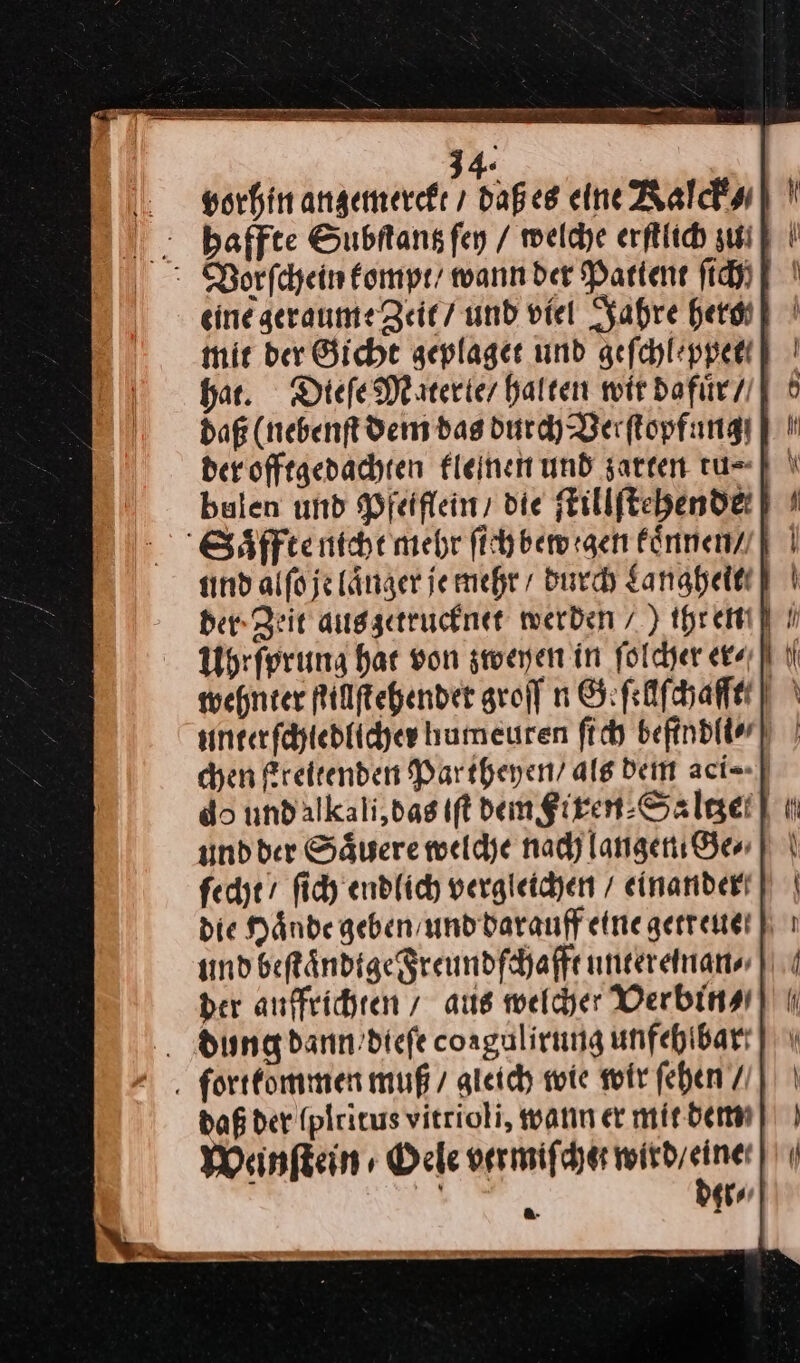 34.
vorhin angemerckt / daß es eine Kalck⸗
haffte Subſtantz ſey / welche erſtlich zu
Vorſchein kompt / wann der Patient ſich
eine geraume Zeit / und viel Jahre hero
mit der Gicht geplaget und geſchleppet
hat. Dieſe Materie / halten wir dafuͤr /
daß (nebenſt dem das durch Verſtopfung
der offtgedachten kleinen und zarten tu-
bulen und Pfeiflein / die ſtillſtehende
Saͤffte nicht mehr ſich bewegen koͤnnen /
und alſo je laͤnger je mehr / durch Langheit
der Zeit ausgetrucknet werden / ) ihren
Uhrſprung hat von zweyen in ſolcher er⸗
wehnter ſtillſtehender groſſ n Geſellſchafft
unterſchiedlicher humeuren ſich befindli⸗
chen ſtreitenden Partheyen / als dem aci-
do und alkali, das iſt dem Fixen⸗Saltze
und der Saͤuere welche nach langen Ge⸗
fecht / ſich endlich vergleichen / einander
die Haͤnde geben / und darauff eine getreue
und beſtaͤndige Freundſchafft untereinan⸗
der auffrichten / aus welcher Verbin⸗
dung dann / dieſe coagulirung unfehlbar
fortkommen muß / gleich wie wir ſehen /
daß der ſpiritus vitrioli, wann er mit dem
Weinſtein⸗Oele vermiſchet wird / eine
der⸗